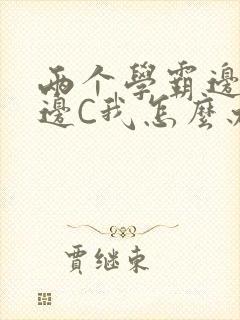 两个學霸邊
邊C我怎麼
賈继東